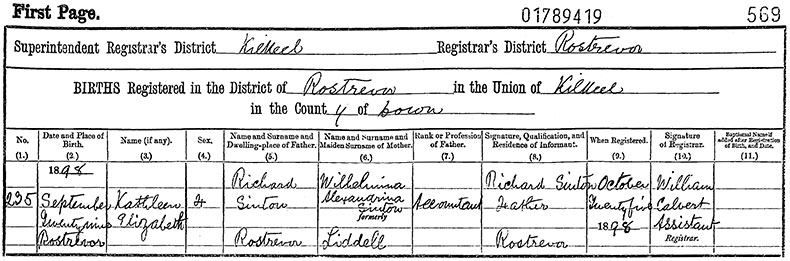 First Page. 01789419 569
Superintendent Registrar's District Kilkeel Registrar's District Rostrevor
BIRTHS Registered in the District of Rostrevor in the Union of Kilkeel
in the County of Down
No. Date and Place of Birth. Name (if any). Sex. Name and Surname and Dwelling-place of Father. Name and Surname and Maiden Surname of Mother. Rank or Profession of Father. Signature, Qualification, and Residence of Informant. When Registered. Signature of Registrar. Baptismal Name if added after Registration of Birth, and Date.
(1.) (2.) (3.) (4.) (5.) (6.) (7.) (8.) (9.) (10.) (11.)
1898 Richard Wilhelmina Richard Sinton October William
235 September Kathleen F Sinton Alexandrina Sinton formerly Accountant Father Twentyfive Calvert
Twentynine Elizabeth 1898 Assistant
Rostrevor Rostrevor Liddell Rostrevor Registrar.